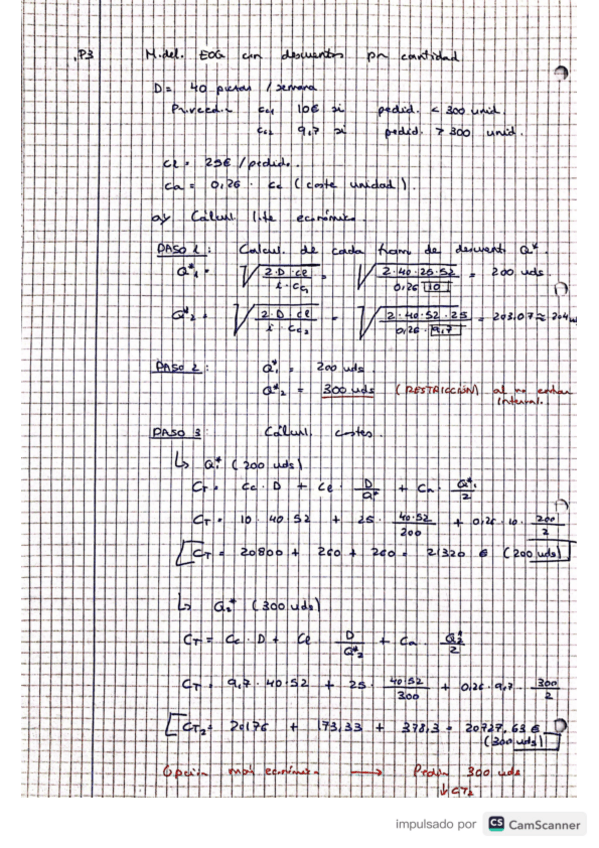 P3 Model. EOQ con descuentos por cantidad
D = 40 piezas / semana
Proveedor Cc1 10€ si pedido < 300 unid.
Cc2 9,7 si pedido > 300 unid.
Ce = 25€ / pedido.
Ca = 0,26 · Cc (coste unidad).
a) Cálculo lote económico.
PASO 1: Calculo. de cada tramo de descuento Q*.
Q*1 = √(2·D·Ce / i·Cc1) = √(2·40·25·52 / 0,26·10) = 200 uds.
Q*2 = √(2·D·Ce / i·Cc2) = √(2·40·52·25 / 0,26·9,7) = 203.07 ≈ 204
PASO 2: Q*1 = 200 uds
Q*2 = 300 uds (RESTRICCIÓN) al no entrar
interval.
PASO 3: Cálculo. costes.
↳ Q1* (200 uds)
CT = Cc · D + Ce · D/Q* + Ca · Q*1/2
CT = 10 · 40 · 52 + 25 · 40·52/200 + 0,26 · 10 · 200/2
CT = 20800 + 260 + 260 = 21320 € (200 uds)
↳ Q2* (300 uds)
CT = Cc · D + Ce · D/Q*2 + Ca · Q*2/2
CT = 9,7 · 40·52 + 25 · 40·52/300 + 0,26 · 9,7 · 300/2
CT2 = 20176 + 173,33 + 378,3 = 20727,63 €
(300 uds)
Opción más económica → Pedir 300 uds
↓ CT2
impulsado por CS CamScanner